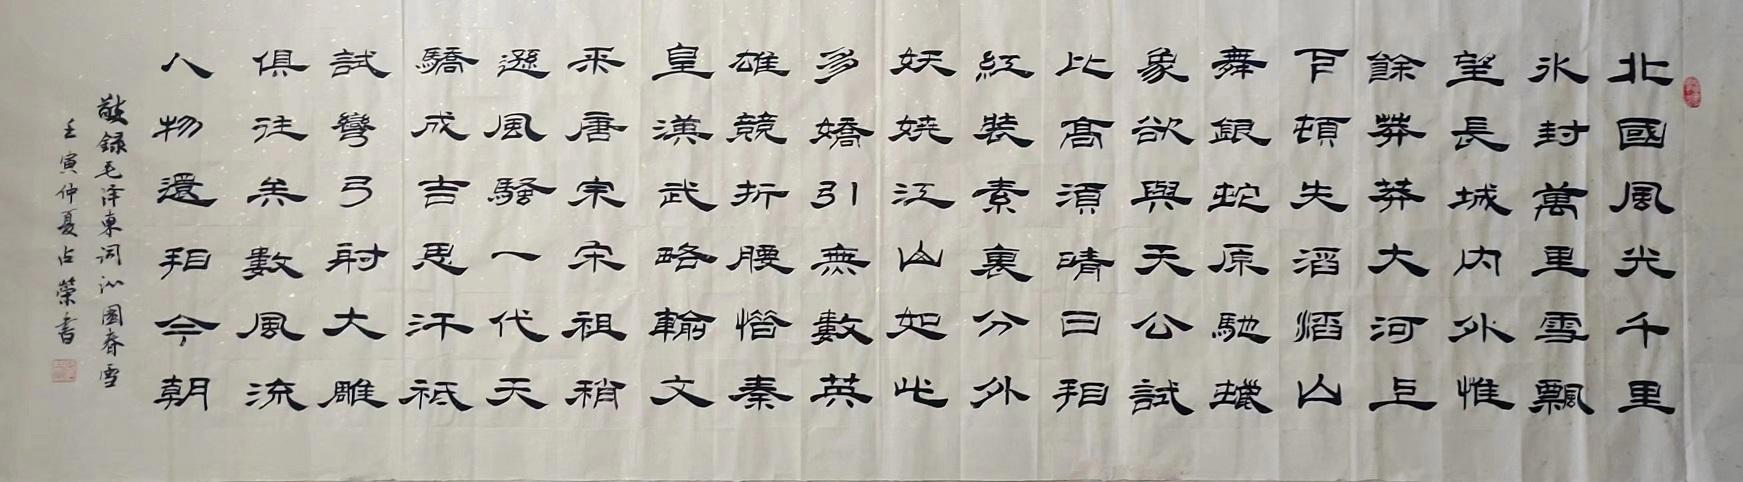 北國風光千里
氷封萬里雪飄
望長城内外惟
餘莽莽大河上
下頓失滔滔山
舞銀蛇原馳蠟
象欲與天公試
比高須晴日看
紅裝素裹分外
妖嬈江山如此
多嬌引無數英
雄競折腰惜秦
皇漢武略輸文
采唐宗宋祖稍
遜風騷一代天
驕成吉思汗祗
試彎弓射大雕
俱往矣數風流
人物還看今朝
敬録毛澤東詞沁園春雪
壬寅仲夏占榮書